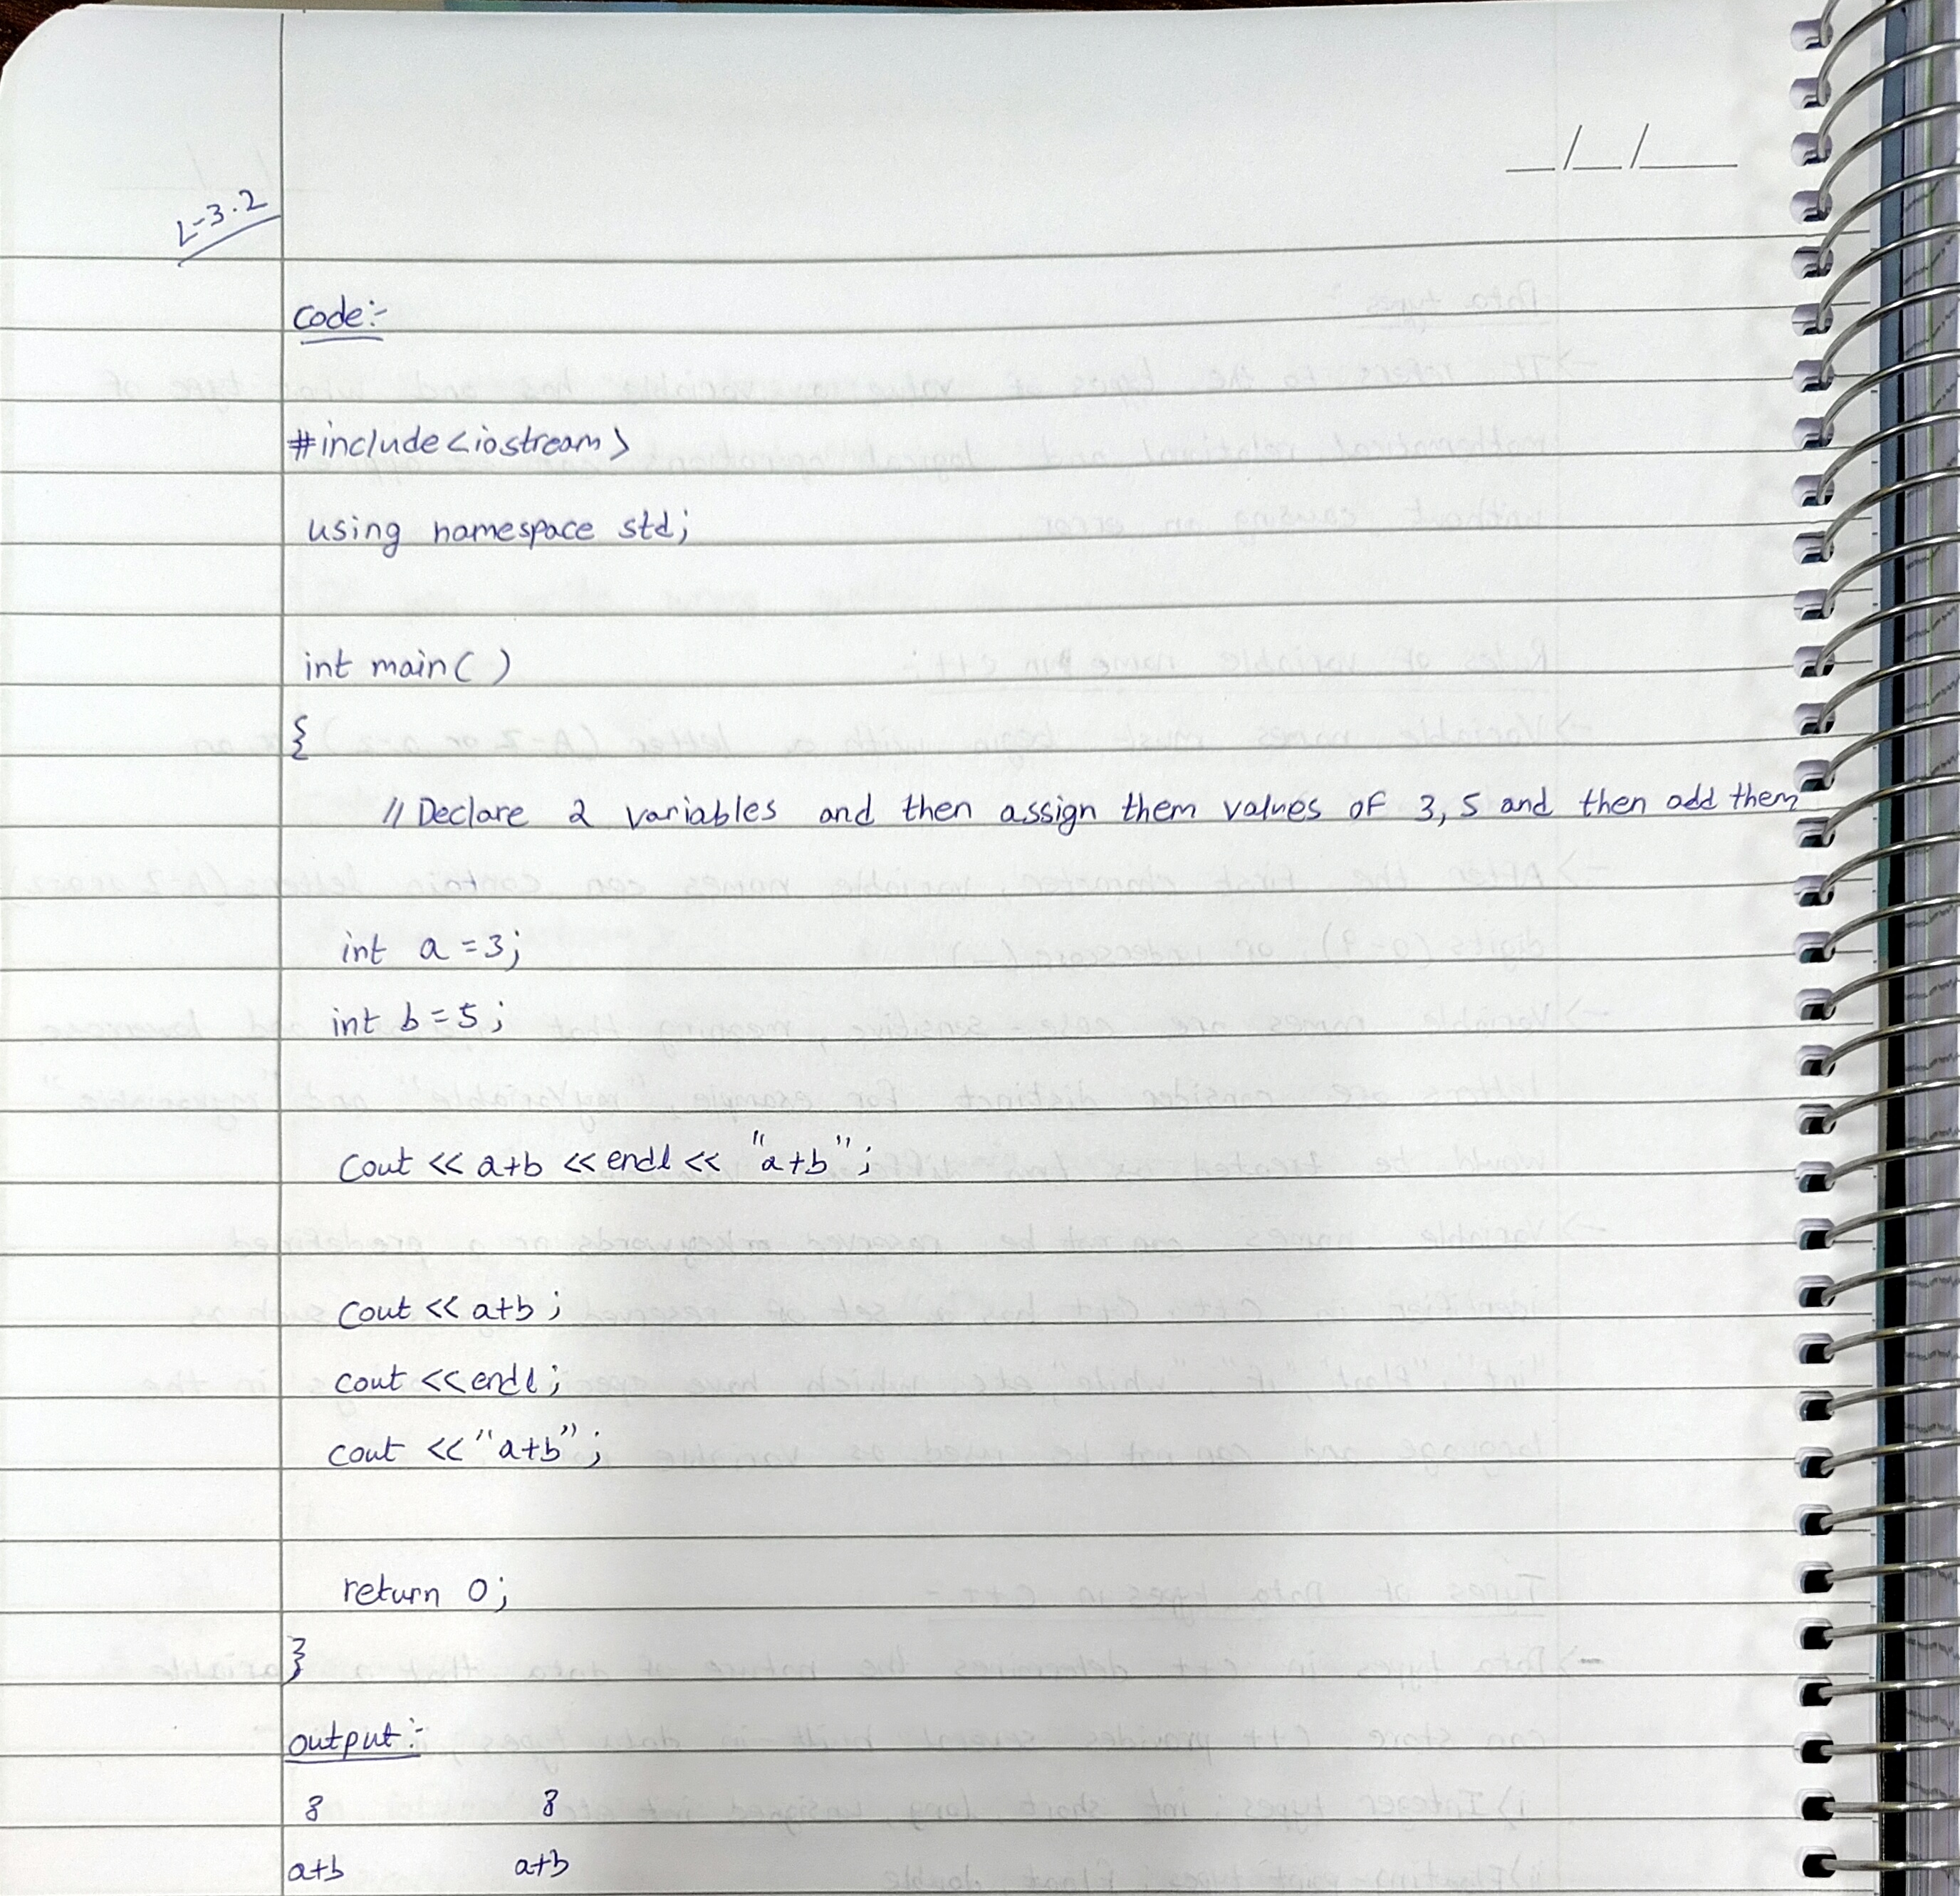 L-3.2
Code:-
#include<iostream>
using namespace std;
int main( )
{
// Declare 2 variables and then assign them values of 3, 5 and then add them
int a = 3;
int b = 5;
Cout << a+b << endl << "a+b";
Cout << a+b;
cout << endl;
cout << "a+b";
return 0;
}
output:-
8 8
a+b a+b